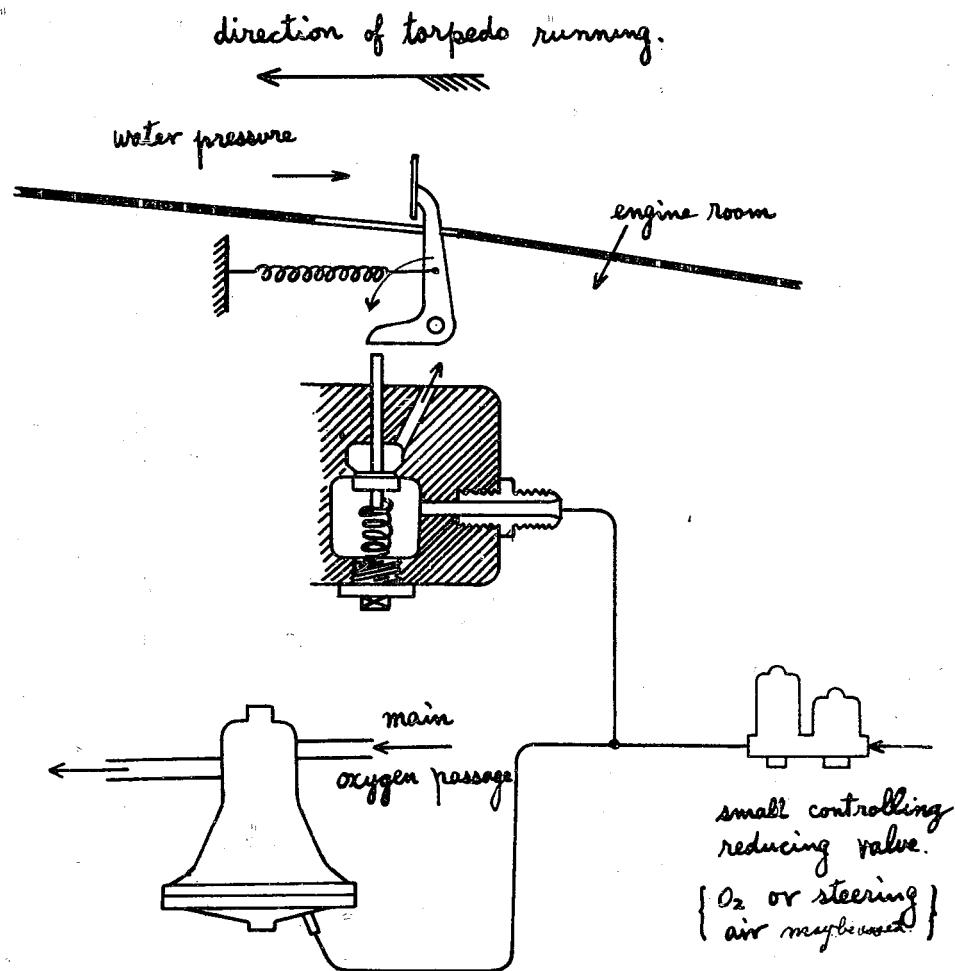 direction of torpedo running.
water pressure
engine room
main
oxygen passage
small controlling
reducing valve.
{ O₂ or steering }
air may be used.